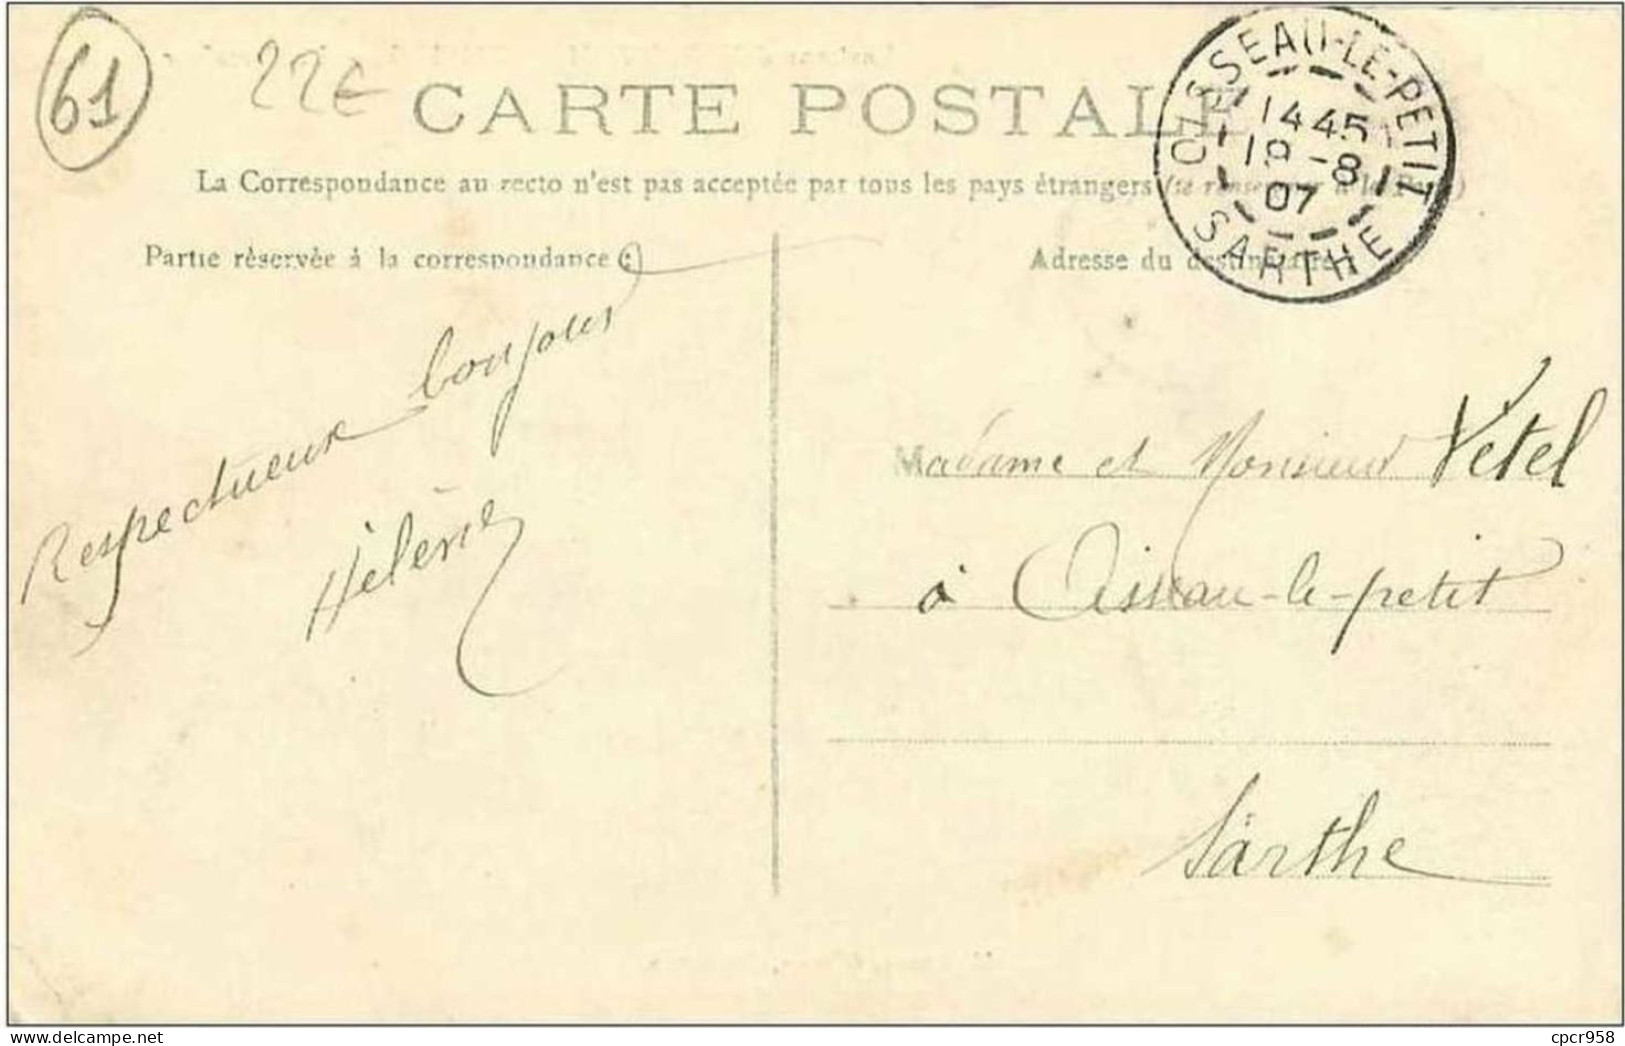 61
22€
CARTE POSTALE
La Correspondance au recto n'est pas acceptée par tous les pays étrangers
OISSEAU-LE-PETIT
1445
19 -8
07
SARTHE
Partie réservée à la correspondance
Adresse du destinataire
Respectueux bonjour
Hélène
Madame et Monsieur Vetel
à Oisseau-le-petit
Sarthe
delcampe.net
cpcr958